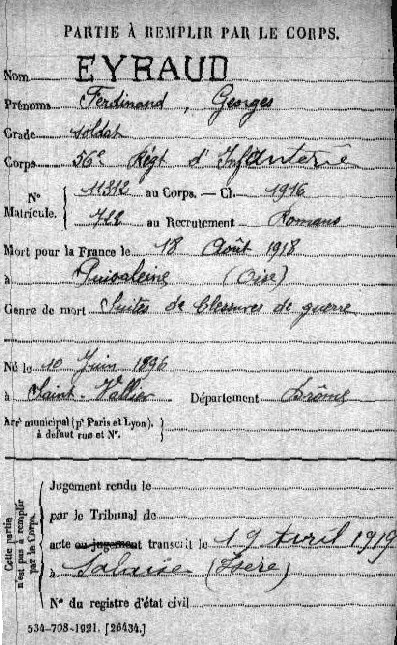 PARTIE À REMPLIR PAR LE CORPS.
Nom EYRAUD
Prénoms Ferdinand, Georges
Grade soldat
Corps 56e Régt d'Infanterie
N° Matricule. 11312 au Corps. — Cl. 1916
722 au Recrutement Romans
Mort pour la France le 18 Août 1918
à (Oise)
Genre de mort Suites de blessures de guerre
Né le 10 Juin 1896
à Saint-Vallier Département Drôme
Arrt municipal (pr Paris et Lyon),
à défaut rue et N°.
Cette partie n'est pas à remplir par le Corps.
Jugement rendu le
par le Tribunal de
acte ou jugement transcrit le 19 Avril 1919
à Salaise (Isère)
N° du registre d'état civil
534-708-1921. [26434.]